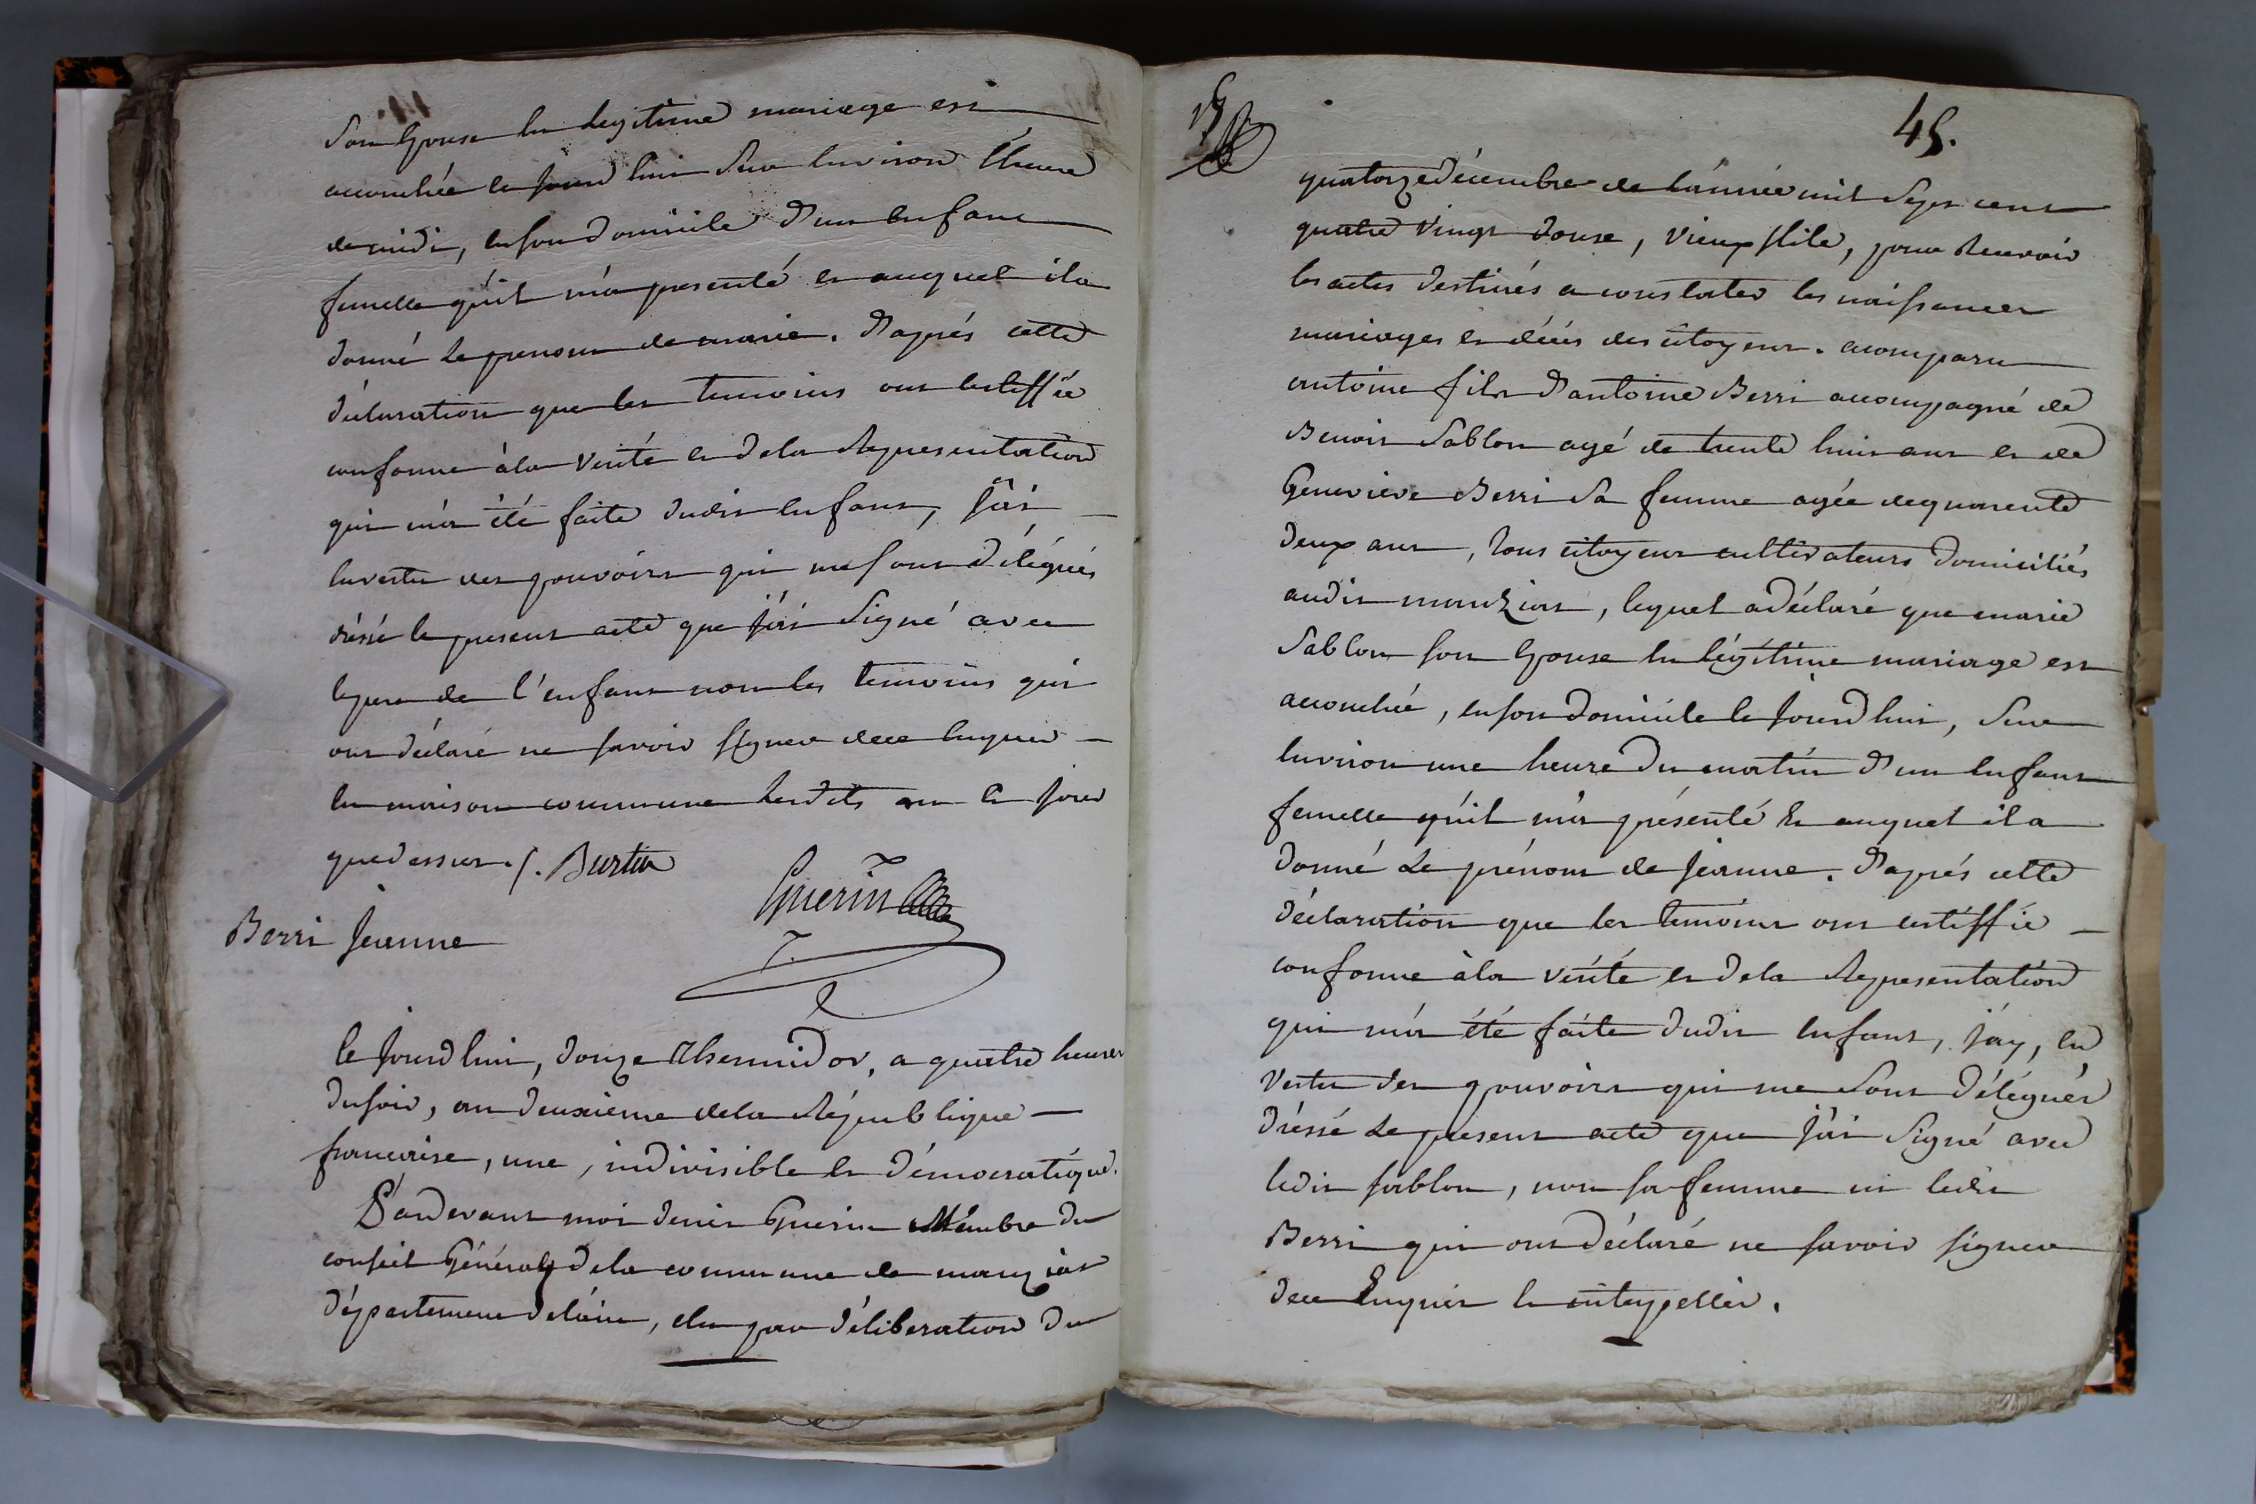 son Epouse en legitime mariage est
accouchée ce jourd'hui sur environ l'heure
de midi, en son domicile d'un enfant
femelle qu'il m'a presenté et auquel il a
donné le prenom de marie. D'aprés cette
déclaration que les temoins ont certiffiée
conforme à la vérité et de la Representation
qui m'a été faite dudit enfant, j'ai
en vertu des pouvoirs qui me sont délégués
dréssé le present acte que j'ai signé avec
le pere de l'enfant non les temoins qui
ont déclaré ne savoir signer de ce enquis
en maison commune lesdits an et jour
que dessus. f. Burtin
Guerin
Berri jeanne
Ce jourd'hui, douze Thermidor, a quatre heures
du soir, an deuxieme de la République
francaise, une, indivisible et démocratique.
Pardevant moi denis Guerin Membre du
conseil Général de la commune de manziat
département de l'ain, elu par déliberation du
45.
quatorze décembre de l'année mil sept cent
quatre vingt douse, vieux stile, pour Recevoir
les actes destinés a constater les naissances
mariages et décés des citoyens. a comparu
antoine fils d'antoine Berri accompagné de
Benoit Sablon agé de trente huit ans et de
Genevieve Berri sa femme agée de quarente
deux ans, tous citoyens cultivateurs domiciliés
audit manziat, lequel a déclaré que marie
Sablon son Epouse en légitime mariage est
accouchée, en son domicile ce jourd'hui, sur
environ une heure du matin d'un enfant
femelle qu'il m'a présenté Et auquel il a
donné le prénom de jeanne. D'aprés cette
déclaration que les temoins ont certiffié
conforme à la vérité et de la Representation
qui m'a été faite dudit enfant, j'ay, en
vertu des pouvoirs qui me sont délégués
dréssé le present acte que j'ai signé avec
ledit sablon, non sa femme ni ledit
Berri qui ont déclaré ne savoir signer
de ce Enquis et interpellés.